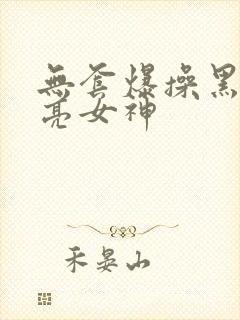 無套爆操黑
亮女神
禾晏山